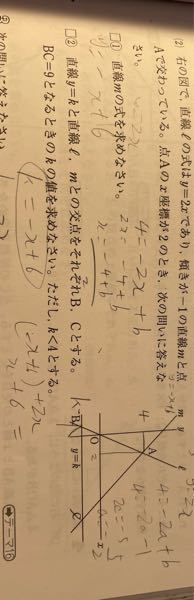 (2) 右の図で，直線ℓの式はy=2xであり，傾きが-1の直線mと点
Aで交わっている。点Aのx座標が2のとき，次の問いに答えな
さい。
□① 直線mの式を求めなさい。
y=-x+6
□② 直線y=kと直線ℓ，mとの交点をそれぞれB，Cとする。
BC=9となるときのkの値を求めなさい。ただし，k<4とする。
k=-x+6
(-x+6)+2x
x+6=
4=-2x+b
2x=-4+b
x=-4+b
y=-x+b
4=-2a+b
4=2a-1
m
y
ℓ
4
A
O
2
x
B
y=k
C
k
➡テーマ16
次の問いに答えなさい